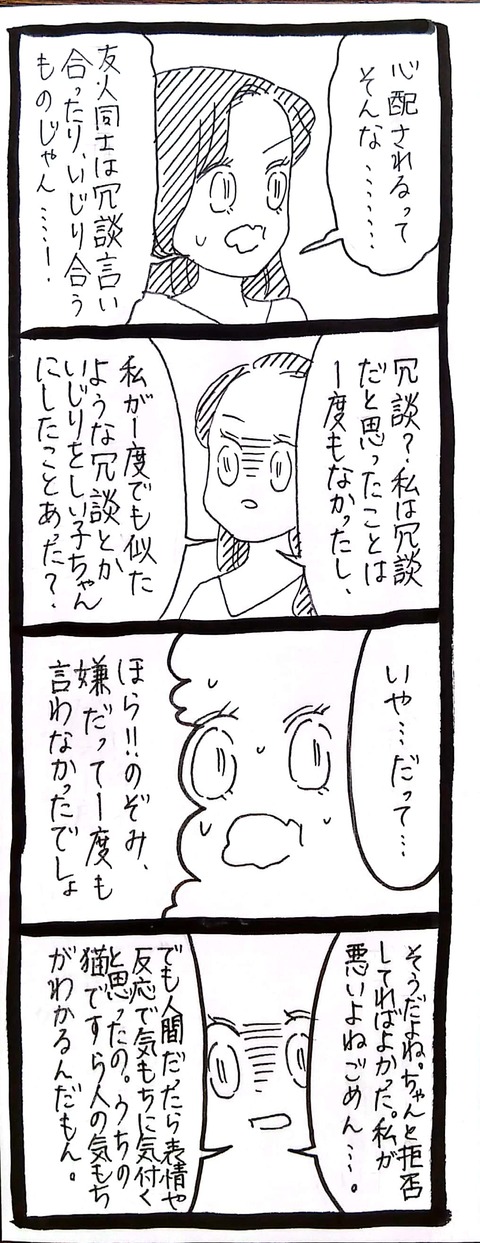 心配されるって
そんな………
友人同士は冗談言い
合ったり、いじり合う
ものじゃん……!
冗談?私は冗談
だと思ったことは
1度もなかったし、
私が1度でも似た
ような冗談とか
いじりをしい子ちゃん
にしたことあった?
いや…だって…
ほら!!のぞみ、
嫌だって1度も
言わなかったでしょ
そうだよね。ちゃんと拒否
してればよかった。私が
悪いよねごめん…。
でも人間だったら表情や
反応で気もちに気付く
と思ったの。うちの
猫ですら人の気もち
がわかるんだもん。